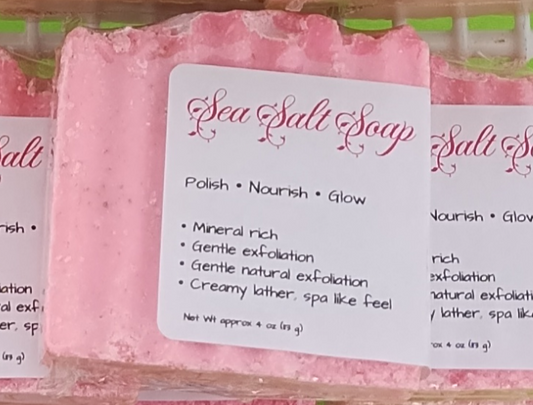 Sea Salt Soap
Polish • Nourish • Glow
• Mineral rich
• Gentle exfoliation
• Gentle natural exfoliation
• Creamy lather, spa like feel
Net Wt approx 4 oz (113 g)
alt
rish •
ation
al exf
er, sp
g)
Salt S
Nourish • Glow
rich
exfoliation
natural exfoliati
lather, spa lik
ox 4 oz (113 g)